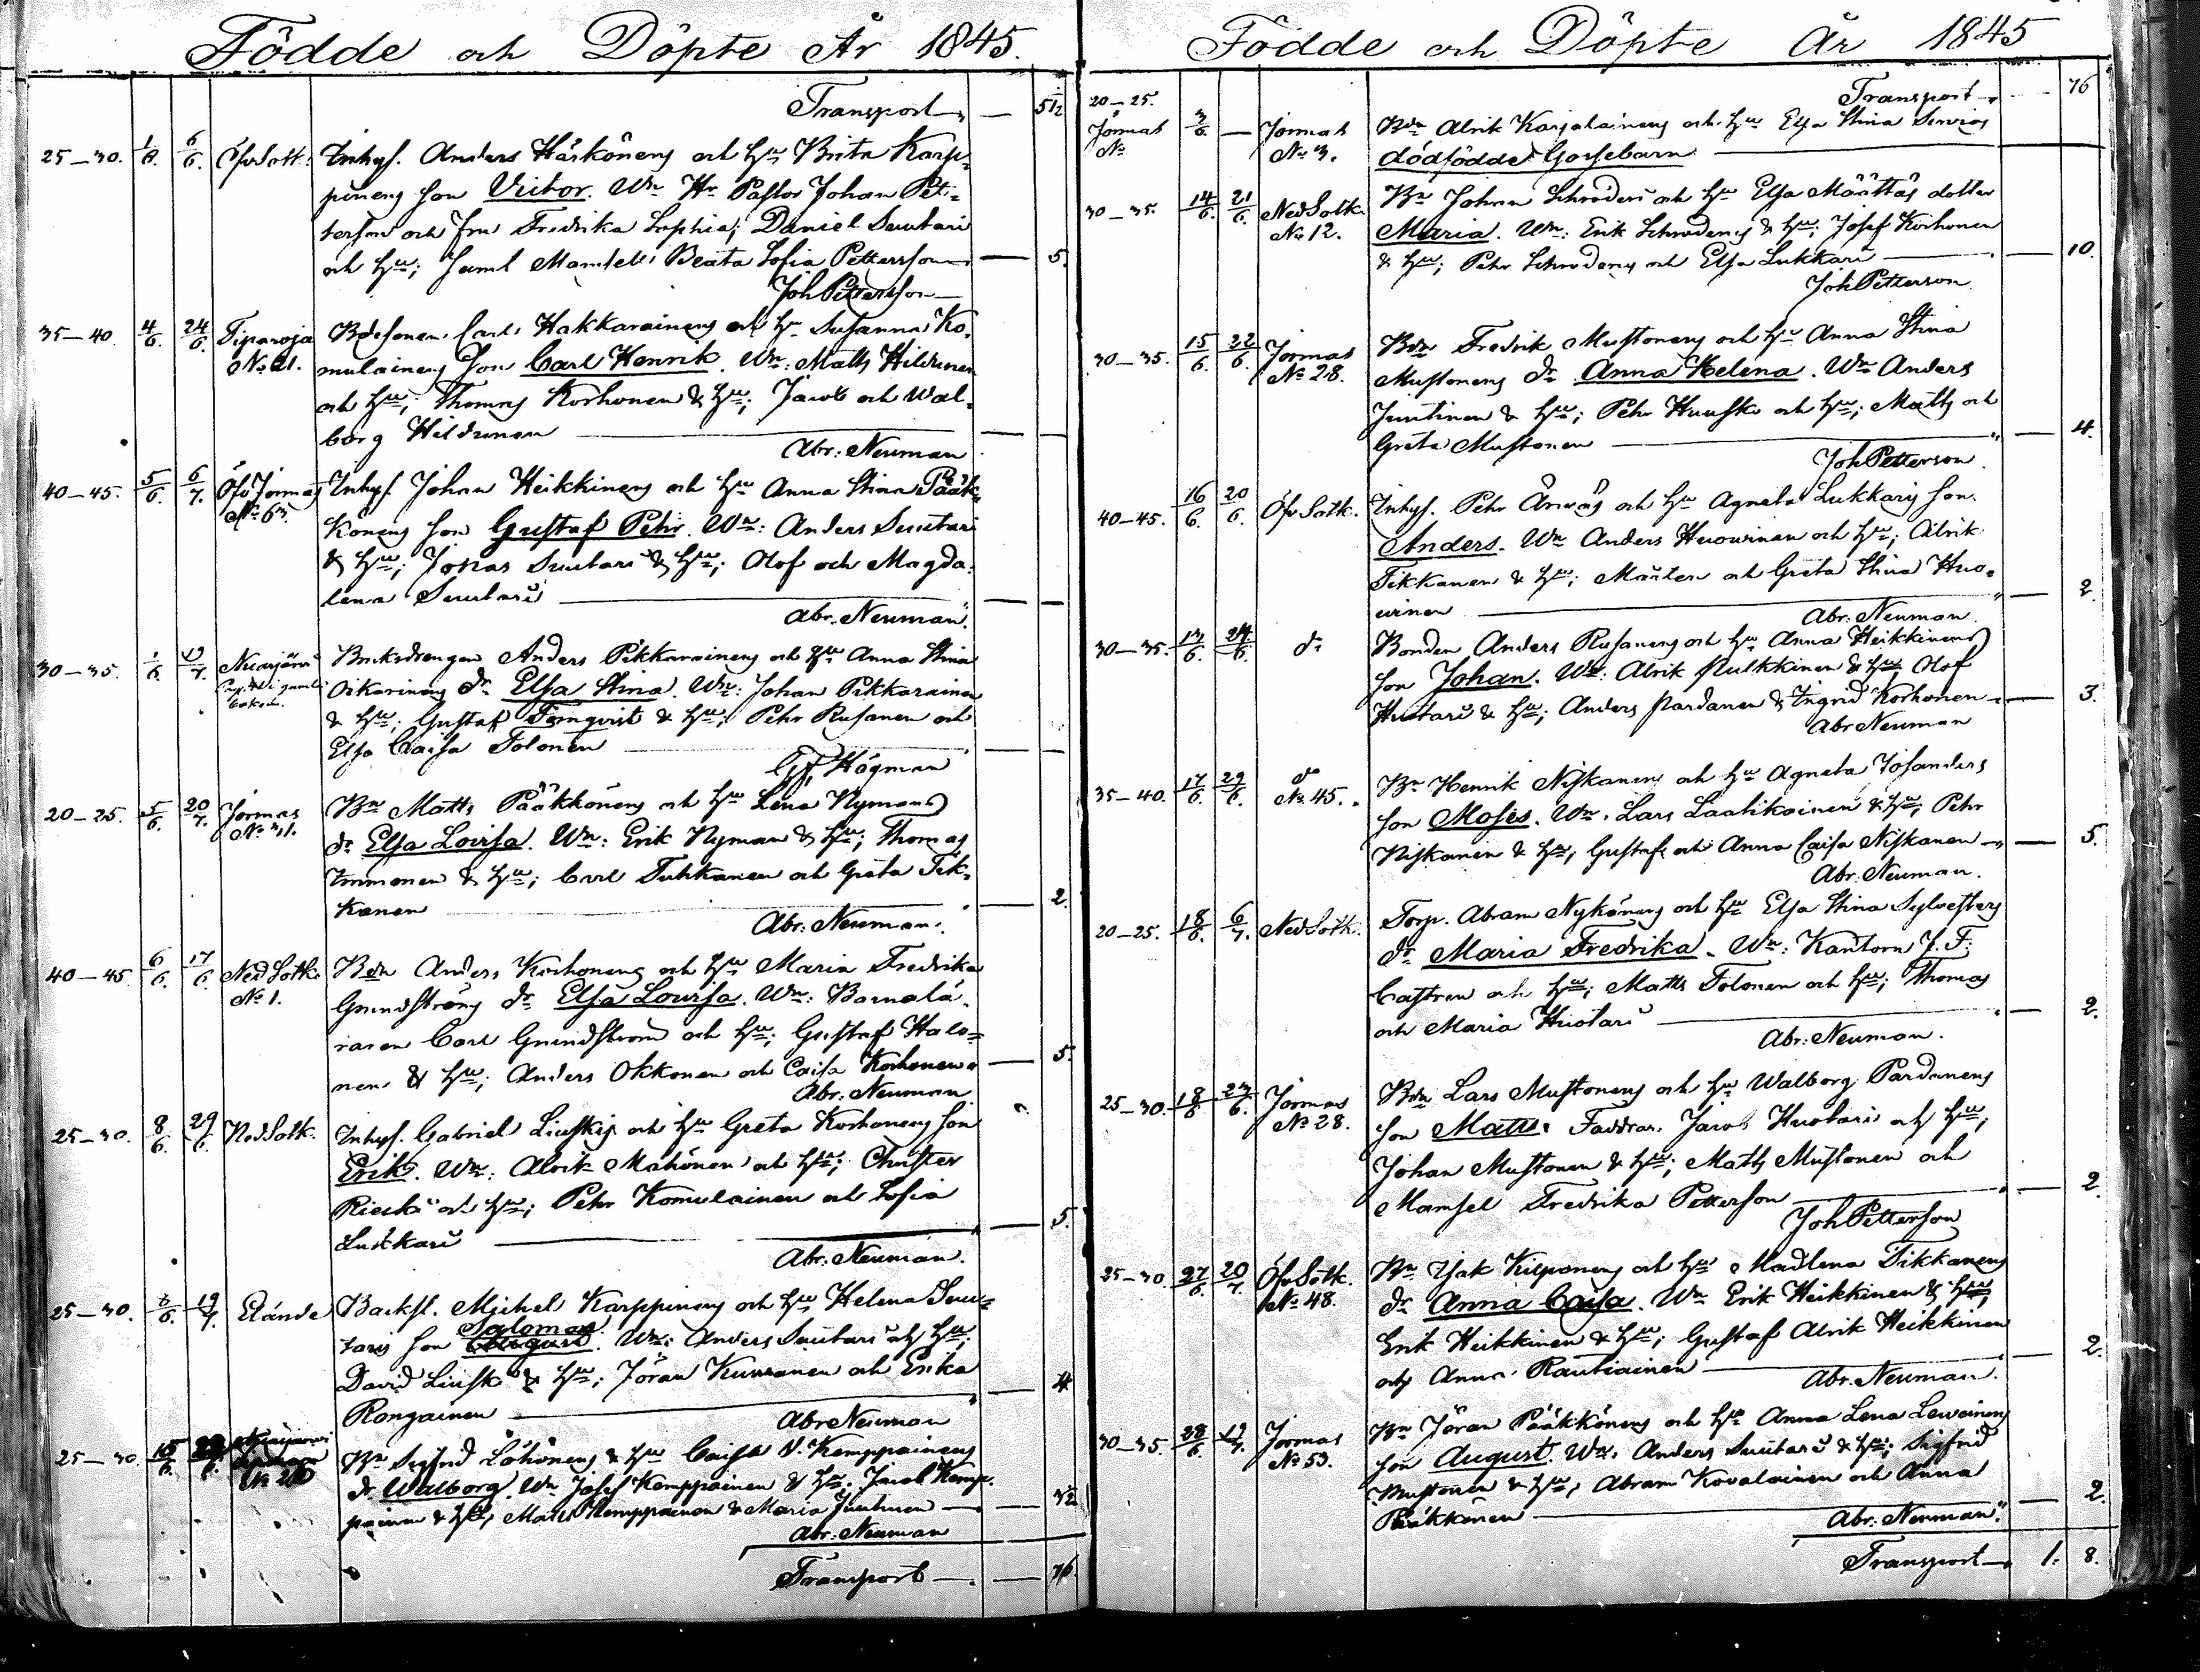 Födde och Döpte År 1845.
Transport 51½
25–30. 1/6. 6/6. Öfv Sotk. Inhys. Anders Härkönens och hu Brita Karp-
pinens son Victor. Wn Hr Pastor Johan Pet-
terson och fru Fredrika Sophia; Daniel Suutari
och hu; samt Mamsell Beata Sofia Pettersson 5.
Joh Petterson
35–40. 4/6. 24/6. Tipasoja Bdesonen Carl Hakkarainens och hu Susanna Ko-
No 21. mulainens son Carl Henrik. Wn: Matts Hildunen
och hu; Thomas Korhonen & hu; Jacob och Wal-
borg Hildunen
Abr: Neuman
40–45. 5/6. 6/7. Öfv Jormas Inhys. Johan Heikkinens och hu Anna Stina Pääk-
könens son Gustaf Pehr. Wn: Anders Suutari
& hu; Jonas Suutari & hu; Olof och Magda-
lena Suutari
Abr. Neuman.
30–35. 19/7. Nuasjärvi Bruksdrengen Anders Pikkarainens och hu Anna Stina
Oikarinens dr Elsa Stina. Wn: Johan Pikkarainen
& hu: Gustaf & hu; Pehr Rusanen och
Elsa Caisa Tolonen
Högman
20–25. 5/6. 20/7. Jormas Bn Matts Pääkkönens och hu Lena Nymans
dr Elsa Lovisa. Wn: Erik Nyman & hu; Thomas
Immonen & hu; Carl Tuhkanen och Greta Tik-
kanen 2.
Abr: Neuman.
40–45 6/6 17/6 Ned Sotk. Bdn Anders Korhonens och hu Maria Fredrika
No 1. Grundströms dr Elsa Lovisa. Wn: Barnalä-
raren Carl Grundström och hu; Gustaf Halo-
nen & hu; Anders Okkonen och Caisa Korhonen 5.
Abr. Neuman
25–30. 8/6. 29/6. Ned Sotk. Inhys. Gabriel Liuskis och hu Greta Korhonens son
Erik. Wn: Alrik Mähönen och hu; Christer
Rieski och hu; Pehr Komulainen och Sofia
Lukkari 5.
Abr. Neuman.
25–30. 19/7. Elände Backst. Michel Karppinens och hu Helena Suu-
Salomon
taris son August. Wn: Anders Suutari och hu;
David Liuski & hu; Jöran Kurranen och Erika
Rongainen 4
Abr Neuman
25–30. 15/6. Bn Sigfrid Löhönens & hu Caisa V. Kemppainens
dr Walborg. Wn Josef Kemppainen & hu; Jacob Kemp-
painen & hu; Matts Kemppainen & Maria Juntunen
Abr. Neuman
Transport 76.
Födde och Döpte År 1845
Transport 76
20–25.
Jormas 3/6 — Jormas Bdn Alrik Karjalainens och hu Elsa Stina
No No 3. dödfödde Gossebarn
30–35. 14/6. 21/6. Ned Sotk. Bn Johan Schroderi och hu Elsa Määttäs dotter
No 12. Maria. Wn: Erik Schroderus & hu; Josef Korhonen
& hu; Pehr Schroderus och Elsa Lukkari 10.
Joh Petterson
30–35. 15/6. 22/6. Jormas Bdn Fredrik Mustonens och hu Anna Stina
No 28. Mustonens dr Anna Helena. Wn Anders
Juntinen & hu; Pehr Huusko och hu; Matts och
Greta Mustonen 4.
Joh Petterson
40–45. 16/6. 20/6. Öfv Sotk. Inhys. Pehr och hu Agneta Lukkaris son
Anders. Wn Anders Huowinen och hu; Alrik
Tikkanen & hu; Mårten och Greta Stina Huo-
winen 2.
Abr. Neuman.
30–35. 24/6. do Bonden Anders Rusanens och hu Anna Heikkinens
son Johan. Wn: Alrik Pulkkinen & hu Olof
Huotari & hu; Anders Pardanen & Ingrid Korhonen 3.
Abr Neuman
35–40. 17/6. 29/6. do Bn Henrik Niskanens och hu Agneta Tofanders
No 45. son Moses. Wn. Lars Laatikainen & hu, Pehr
Niskanen & hu; Gustaf och Anna Caisa Niskanen 5.
Abr. Neuman.
20–25. 18/6. 6/7. Ned Sotk. Torp. Abram Nykönens och hu Elsa Stina Sylvesters
dr Maria Fredrika. Wn: Kantorn J. F.
Castren och hu; Matts Tolonen och hu; Thomas
och Maria Huotari 2.
Abr. Neuman.
25–30. 18/6 Jormas Bdn Lars Mustonens och hu Walborg Pardanens
No 28. son Matts. Faddrar. Jacob Huotari och hu;
Johan Mustonen & hu; Matts Mustonen och
Mamsel Fredrika Petterson 2.
Joh Petterson
25–30. 27/6. 20/7. Öfv Sotk. Bn Isak Kilponens och hu Madlena Tikkanens
No 48. dr Anna Caisa. Wn Erik Heikkinen & hu;
Erik Heikkinen & hu; Gustaf Alrik Heikkinen
och Anna Rautiainen 2.
Abr. Neuman.
30–35. 28/6. Jormas Bn Jöran Pääkkönens och hu Anna Lena Lewainens
No 53. son August. Wn. Anders Suutari & hu; Sigfrid
Mustonen & hu; Abram Kovalainen och Anna
Pääkkönen 2.
Abr. Neuman.
Transport 1. 8.